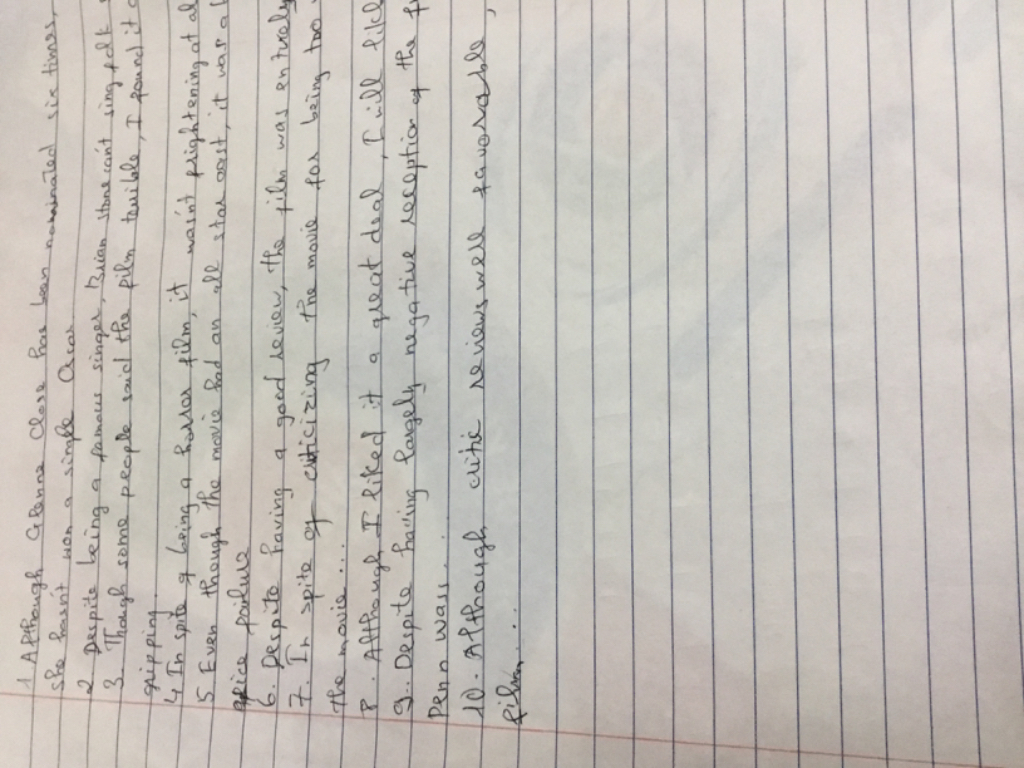 1. Although Glenne Close has been nominated six times,
she hasn't won a single Oscar
2. Despite being a famous singer, Brian Stone can't sing
3. Though some people said the film terrible, I found it
gripping.
4. In spite of being a horror film, it wasn't frightening at
5. Even though the movie had an all star cast, it was a
failure
6. Despite having a good review, the film was entirely
7. In spite of criticizing the movie for being too
the movie...
8. Although, I liked it a great deal, I will
9. Despite having largely negative reception of the
Penn was..
10. Although, critic reviews well favorable,
film...